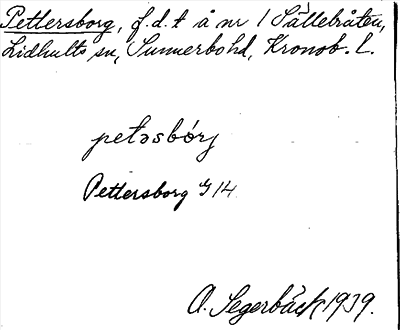 Pettersborg, f.d.t å nr 1 Sällebråten,
Lidhults sn, Sunnerbo hd, Kronob. l.
petəsbórj
Pettersborg G 14
A. Segerbäck 1939.